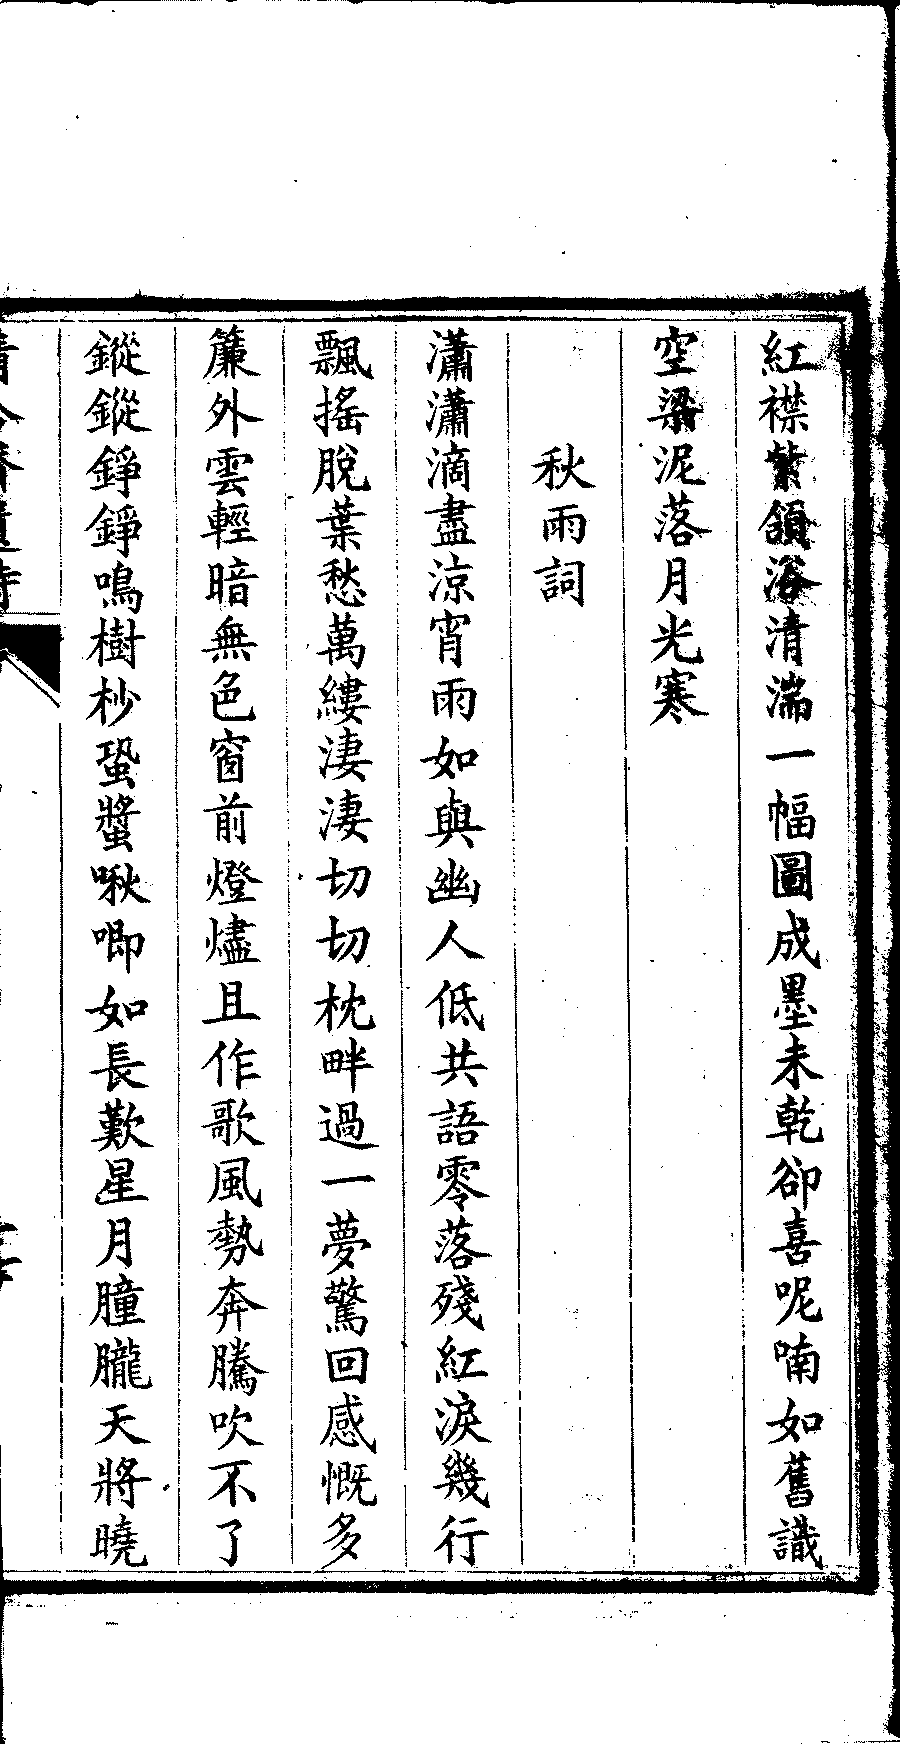 紅襟紫頷浴清湍一幅圖成墨未乾卻喜呢喃如舊識
空梁泥落月光寒
秋雨詞
瀟瀟滴盡涼宵雨如與幽人低共語零落殘紅淚幾行
飄搖脫葉愁萬縷淒淒切切枕畔過一夢驚回感慨多
簾外雲輕暗無色窗前燈燼且作歌風勢奔騰吹不了
鏦鏦錚錚鳴樹杪蛩螿啾唧如長歎星月朣朧天將曉